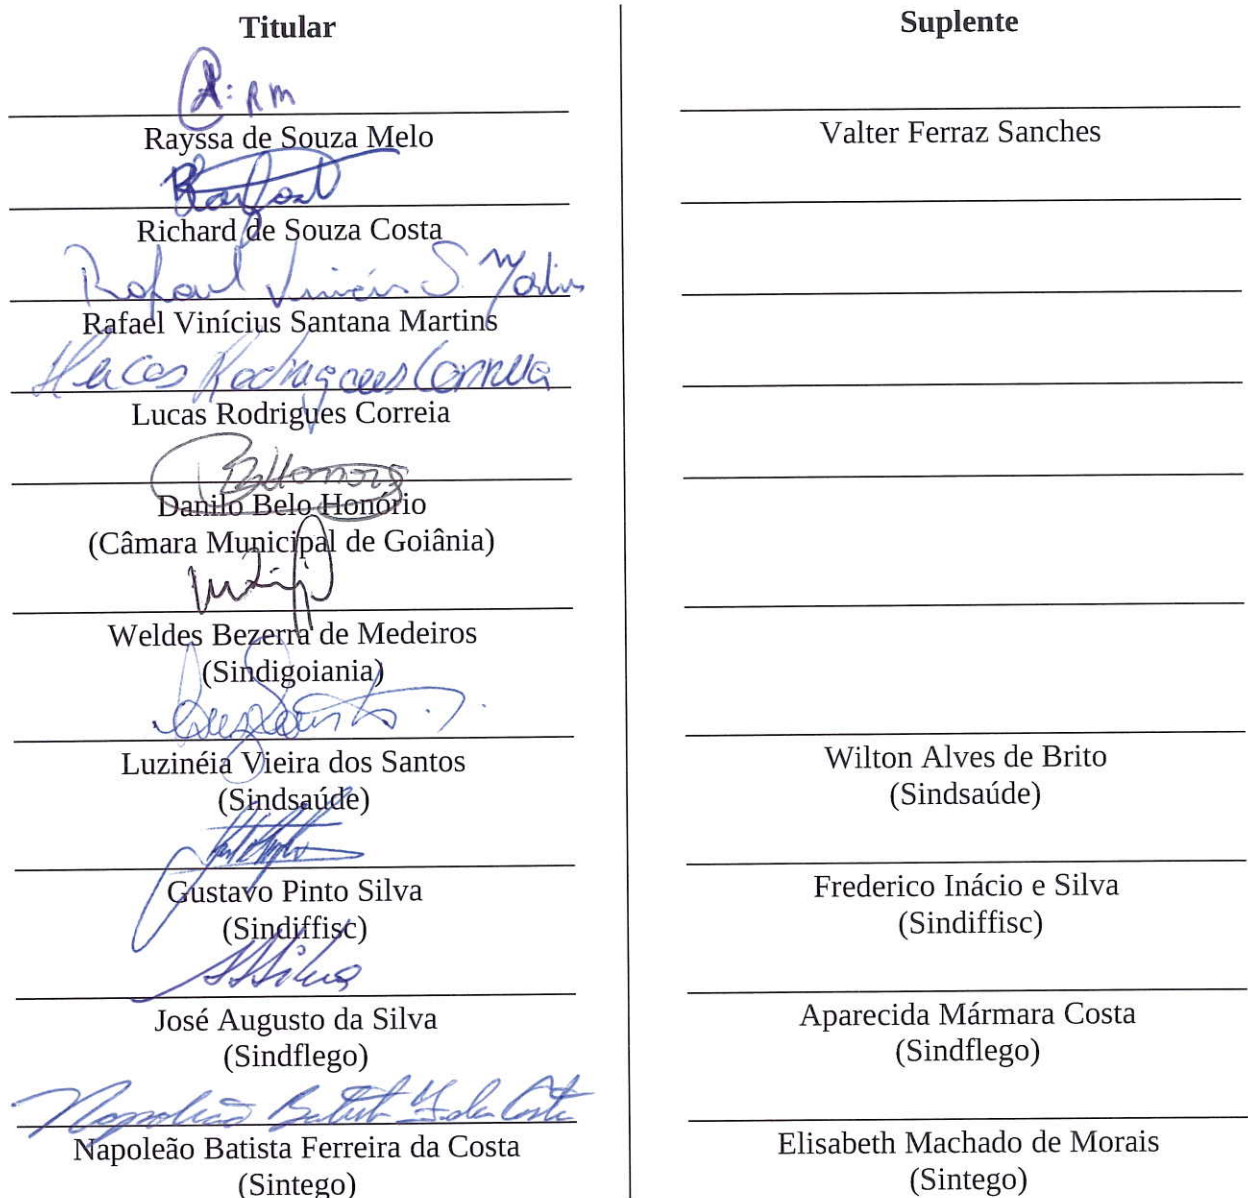 Titular
R: RM
Rayssa de Souza Melo
Richard de Souza Costa
Rafael Vinícius S. Martins
Rafael Vinícius Santana Martins
Lucas Rodrigues Correia
Lucas Rodrigues Correia
Danilo Belo Honório
(Câmara Municipal de Goiânia)
Weldes Bezerra de Medeiros
(Sindigoiania)
Luzinéia Vieira dos Santos
(Sindsaúde)
Gustavo Pinto Silva
(Sindiffisc)
José Augusto da Silva
(Sindflego)
Napoleão Batista F. da Costa
Napoleão Batista Ferreira da Costa
(Sintego)
Suplente
Valter Ferraz Sanches
Wilton Alves de Brito
(Sindsaúde)
Frederico Inácio e Silva
(Sindiffisc)
Aparecida Mármara Costa
(Sindflego)
Elisabeth Machado de Morais
(Sintego)